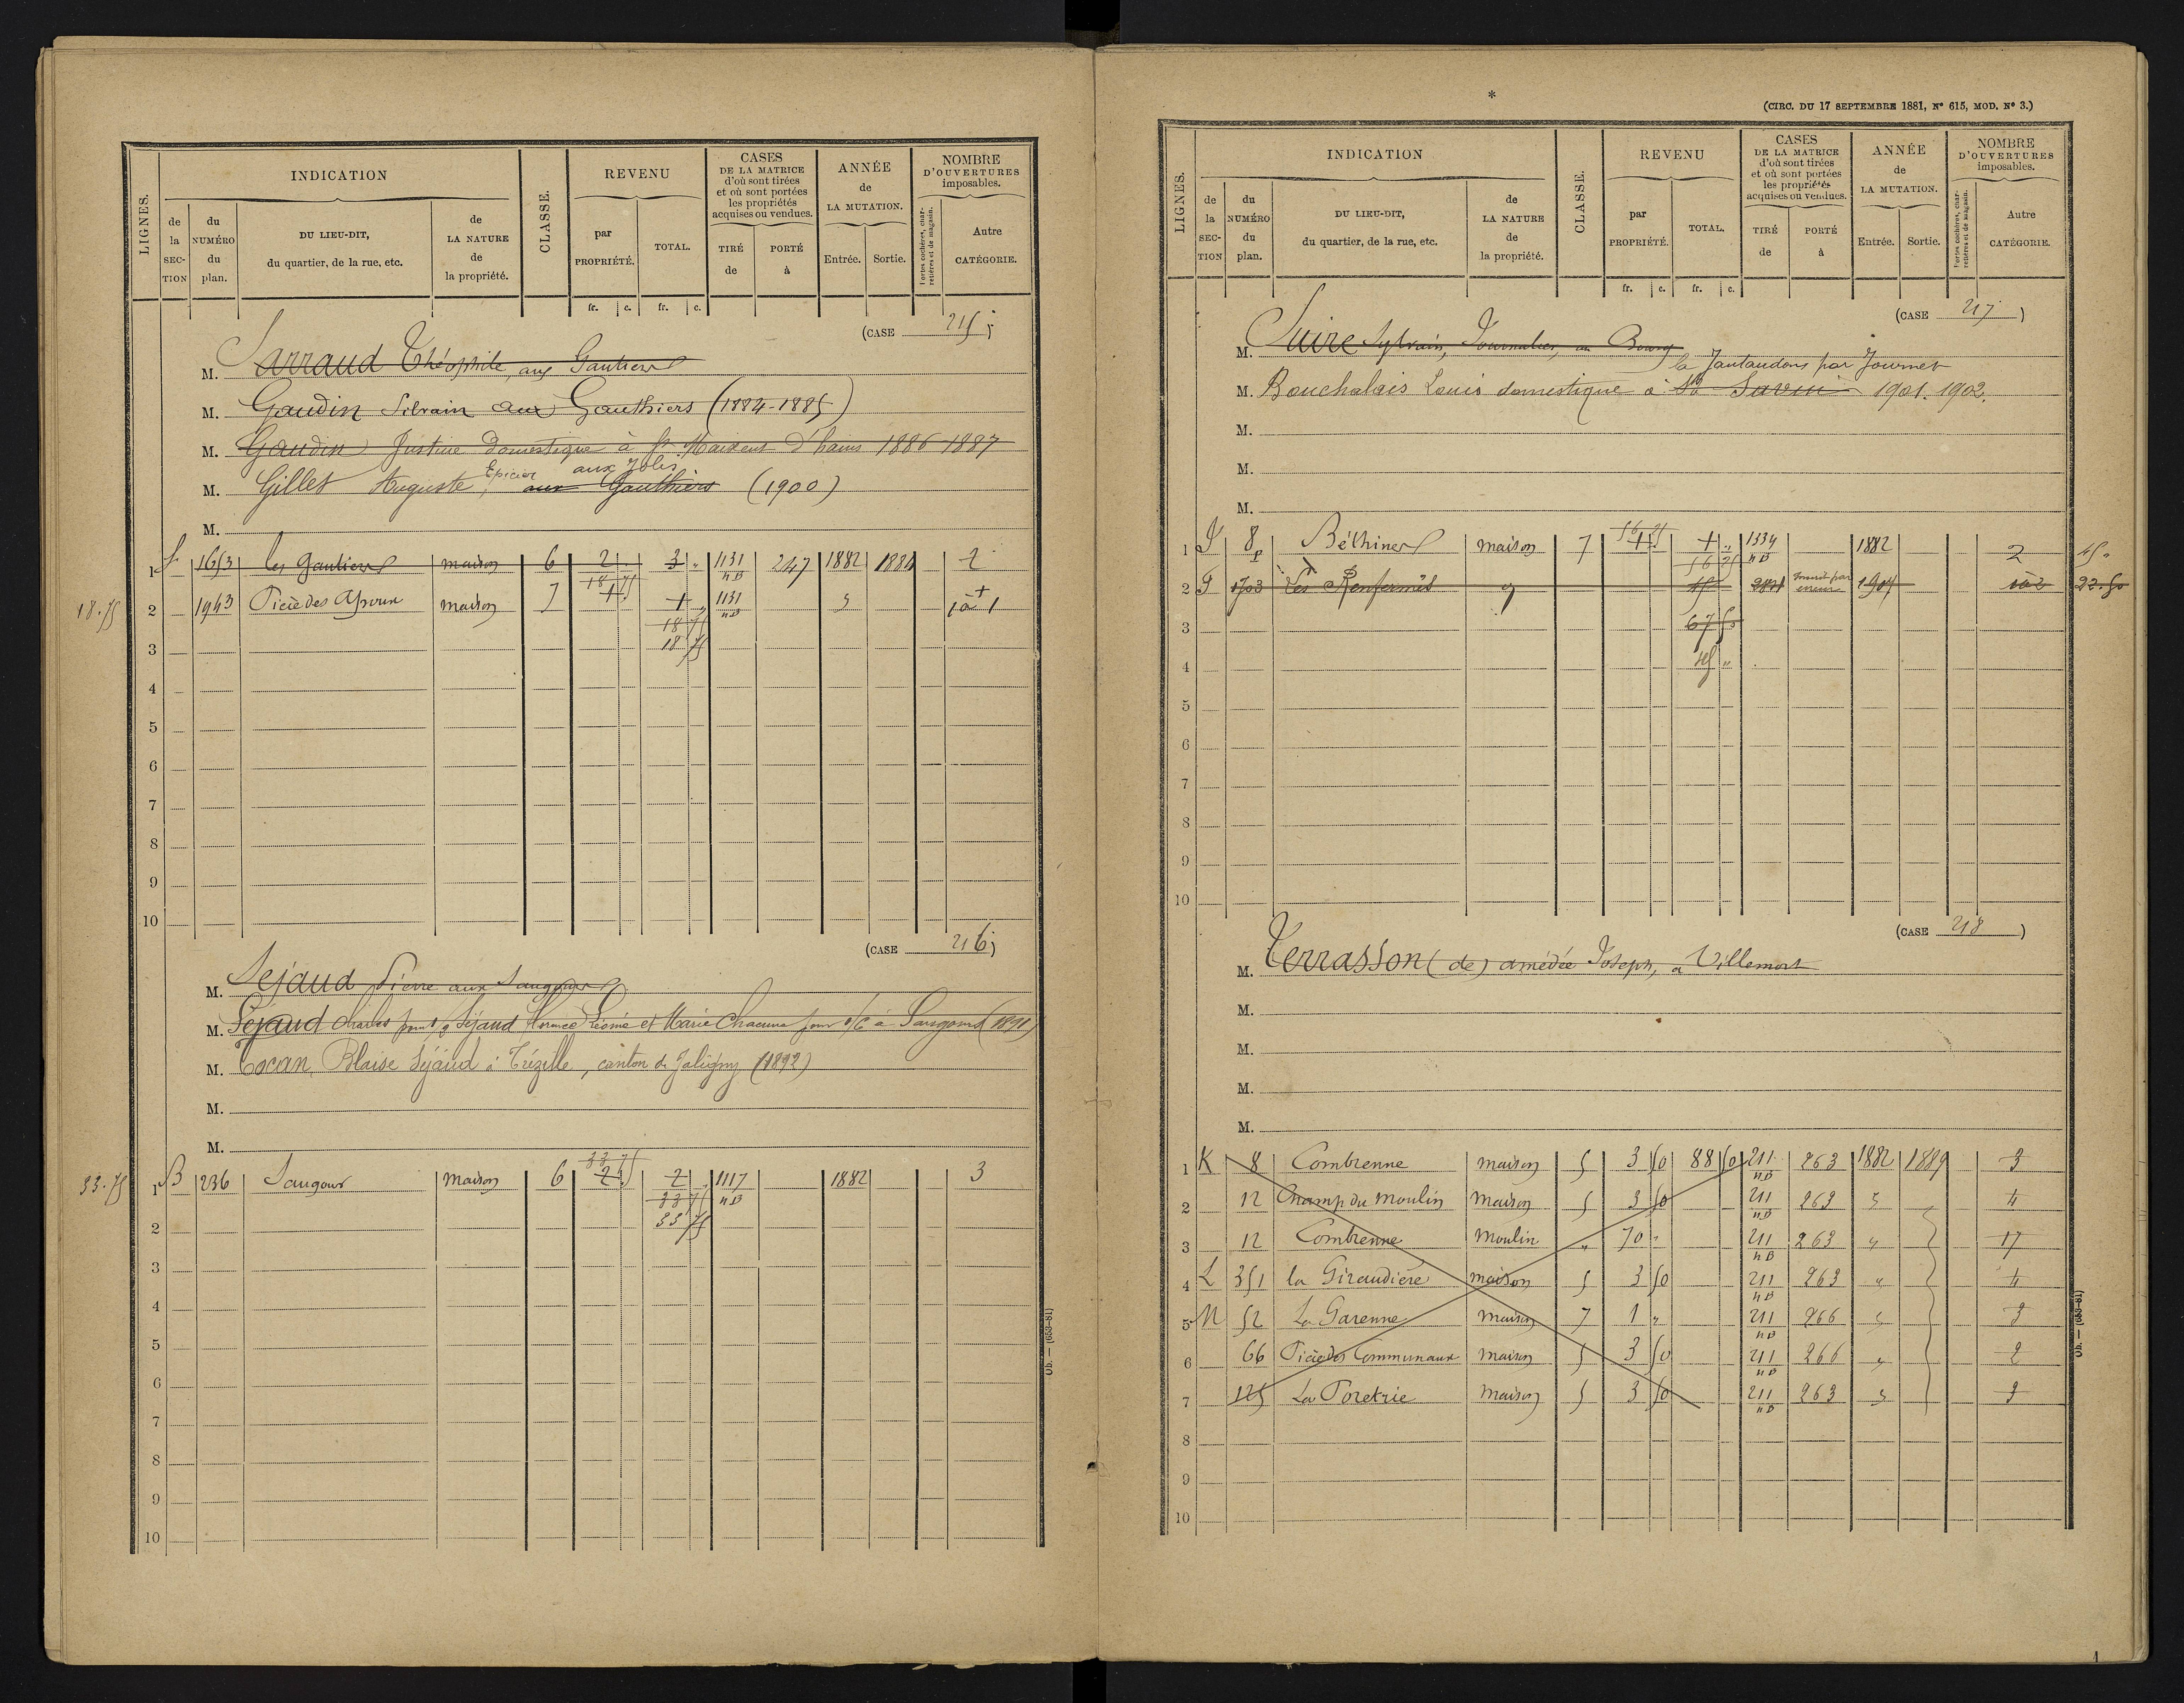 INDICATION
REVENU
CASES
DE LA MATRICE
d'où sont tirées
et où sont portées
les propriétés
acquises ou vendues.
ANNÉE
de
LA MUTATION.
NOMBRE
D'OUVERTURES
imposables.
LIGNES.
de la SECTION
du NUMÉRO du plan.
DU LIEU-DIT,
du quartier, de la rue, etc.
de LA NATURE de la propriété.
CLASSE.
par PROPRIÉTÉ.
TOTAL.
TIRÉ de
PORTÉ à
Entrée.
Sortie.
Portes cochères, charretières et de magasin.
Autre CATÉGORIE.
fr. c. fr. c.
(CASE 215)
M. Sarraud Théophile, aux Gautiers
M. Gaudin Silvain aux Gauthiers (1884-1885)
M. Gaudin Justine domestique à St Maixent 1886 1887
Epicier aux Jolis
M. Gillet Auguste, aux Gauthiers (1900)
M.
1 1653 les Gautiers maison 6 2 3 " 1131 nB 247 1882 2
18.75
2 1943 maison 7 18 75 1 1 " 1131 nB " 1 à 1
18 75
3 18 75
4
5
6
7
8
9
10
(CASE 216)
M. Sejaud Pierre aux
M. Sejaud Charles Séjaud et Marie Chacune pour 1/6 à (1891)
M. Cocan, Blaise Séjaud à Trézelle, canton de Jaligny (1892)
M.
M.
33.75
1 B 236 Saugour maison 6 33 75 2 2 " 1117 nB 1882 3
33 75
2 33 75
3
4
5
6
7
8
9
10
Ob. — (653-81)
*
(CIRC. DU 17 SEPTEMBRE 1881, N° 615, MOD. N° 3.)
INDICATION
REVENU
CASES
DE LA MATRICE
d'où sont tirées
et où sont portées
les propriétés
acquises ou vendues.
ANNÉE
de
LA MUTATION.
NOMBRE
D'OUVERTURES
imposables.
LIGNES.
de la SECTION
du NUMÉRO du plan.
DU LIEU-DIT,
du quartier, de la rue, etc.
de LA NATURE de la propriété.
CLASSE.
par PROPRIÉTÉ.
TOTAL.
TIRÉ de
PORTÉ à
Entrée.
Sortie.
Portes cochères, charretières et de magasin.
Autre CATÉGORIE.
fr. c. fr. c.
(CASE 217)
M. Suire Sylvain, Journalier, au Bourg
la Jautaudon par Journet
M. Bouchalais Louis domestique à St Savin 1901. 1902.
M.
M.
M.
1 8p Béthines maison 7 1 1 " 1334 nB 1882 2 45 "
56 25
2 1703 Les Renfermés 45 1904 22.50
3 67 50
4 45 "
5
6
7
8
9
10
(CASE 218)
M. Terrasson (de) amédée Joseph, à Villemort
M.
M.
M.
M.
1 K 8 Combrenne maison 5 3 50 88 50 211 nB 263 1882 1889 3
2 12 Champ du moulin maison 5 3 50 211 nB 263 " 4
3 12 Combrenne Moulin " 70 " 211 nB 263 " 17
4 L 351 la Giraudière maison 5 3 50 211 nB 263 " 4
5 M 52 La Garenne maison 7 1 " 211 nB 266 " 3
6 66 Communaux maison 5 3 50 211 nB 266 " 2
7 125 La Poretrie maison 5 3 50 211 nB 263 " 3
8
9
10
Ob. — (653-81)